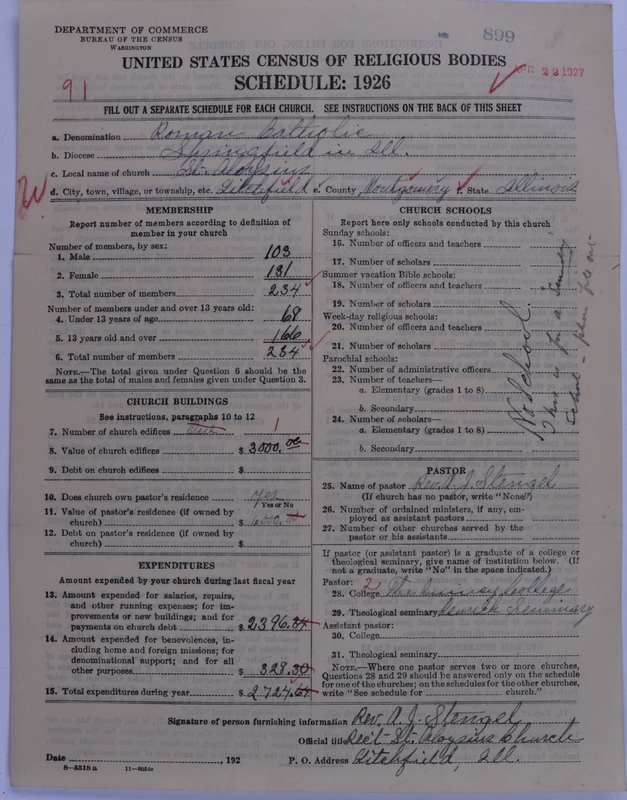 DEPARTMENT OF COMMERCE
BUREAU OF THE CENSUS
WASHINGTON
899
UNITED STATES CENSUS OF RELIGIOUS BODIES
APR 23 1927
SCHEDULE: 1926
91
FILL OUT A SEPARATE SCHEDULE FOR EACH CHURCH. SEE INSTRUCTIONS ON THE BACK OF THIS SHEET
a. Denomination Roman Catholic
b. Diocese Springfield in Ill.
c. Local name of church St. Aloysius
d. City, town, village, or township, etc. Litchfield e. County Montgomery f. State Illinois
MEMBERSHIP
Report number of members according to definition of
member in your church
Number of members, by sex:
1. Male 103
2. Female 131
3. Total number of members 234
Number of members under and over 13 years old:
4. Under 13 years of age 68
5. 13 years old and over 166
6. Total number of members 234
NOTE.—The total given under Question 6 should be
same as the total of males and females given under Question 3.
CHURCH BUILDINGS
See instructions, paragraphs 10 to 12
7. Number of church edifices One 1
8. Value of church edifices $ 3000.00
9. Debt on church edifices $
10. Does church own pastor's residence Yes
Yes or No
11. Value of pastor's residence (if owned by
church) $ 6000.00
12. Debt on pastor's residence (if owned by
church) $
EXPENDITURES
Amount expended by your church during last fiscal year
13. Amount expended for salaries, repairs,
and other running expenses; for im-
provements or new buildings; and for
payments on church debt $ 2,396.34
14. Amount expended for benevolences, in-
cluding home and foreign missions; for
denominational support; and for all
other purposes $ 328.30
15. Total expenditures during year $ 2,724.64
CHURCH SCHOOLS
Report here only schools conducted by this church
Sunday schools:
16. Number of officers and teachers
17. Number of scholars
Summer vacation Bible schools:
18. Number of officers and teachers
19. Number of scholars
Week-day religious schools:
20. Number of officers and teachers
21. Number of scholars
Parochial schools:
22. Number of administrative officers
23. Number of teachers—
a. Elementary (grades 1 to 8)
b. Secondary
24. Number of scholars—
a. Elementary (grades 1 to 8)
b. Secondary
No School.
PASTOR
25. Name of pastor Rev. A. J. Stengel
(If church has no pastor, write "None")
26. Number of ordained ministers, if any, em-
ployed as assistant pastors
27. Number of other churches served by the
pastor or his assistants
If pastor (or assistant pastor) is a graduate of a college or
theological seminary, give name of institution below. (If
not a graduate, write "No" in the space indicated.)
Pastor: 2
28. College Quincy College
29. Theological seminary Kenrick Seminary
Assistant pastor:
30. College
31. Theological seminary
NOTE.—Where one pastor serves two or more churches,
Questions 28 and 29 should be answered only on the schedule
for one of the churches; on the schedules for the other churches,
write "See schedule for church."
Signature of person furnishing information Rev. A. J. Stengel
Official title Rect. St. Aloysius Church
Date , 192 P. O. Address Litchfield, Ill.
8—5518 a 11—9054c